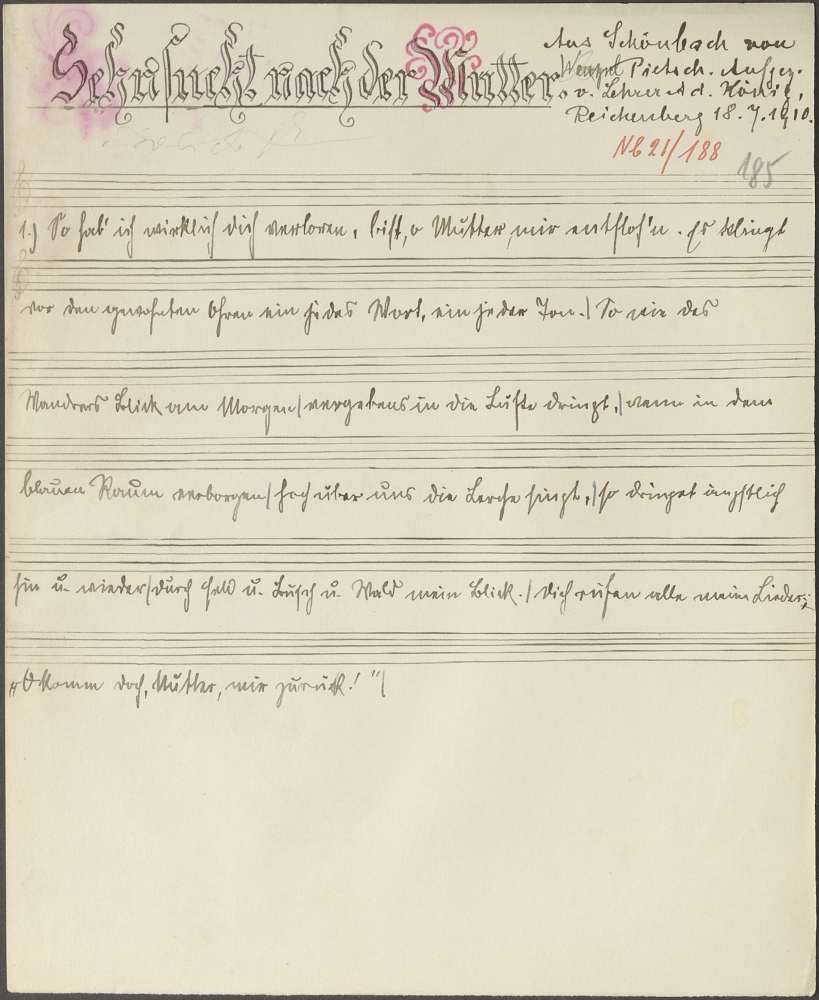 Sehnsucht nach der Mutter.
Aus Schönbach von
Wenzel Pietsch. Aufgez.
v. Lehrer Ad. König,
Reichenberg 18.7.1910.
NB 21/188
185
1.) So hab' ich wirklich dich verloren, bist, o Mutter, mir entfloh'n. Es klingt
vor den gewohnten Ohren ein jedes Wort, ein jeder Ton.| So wie des
Wandrers Blick am Morgen| vergebens in die Lüfte dringt,| wenn in dem
blauen Raum verborgen| hoch über uns die Lerche singt,| so dringet ängstlich
hin u. wieder| durch Feld u. Busch u. Wald mein Blick.| Dich rufen alle meine Lieder:
„O komm doch, Mutter, mir zurück!"|